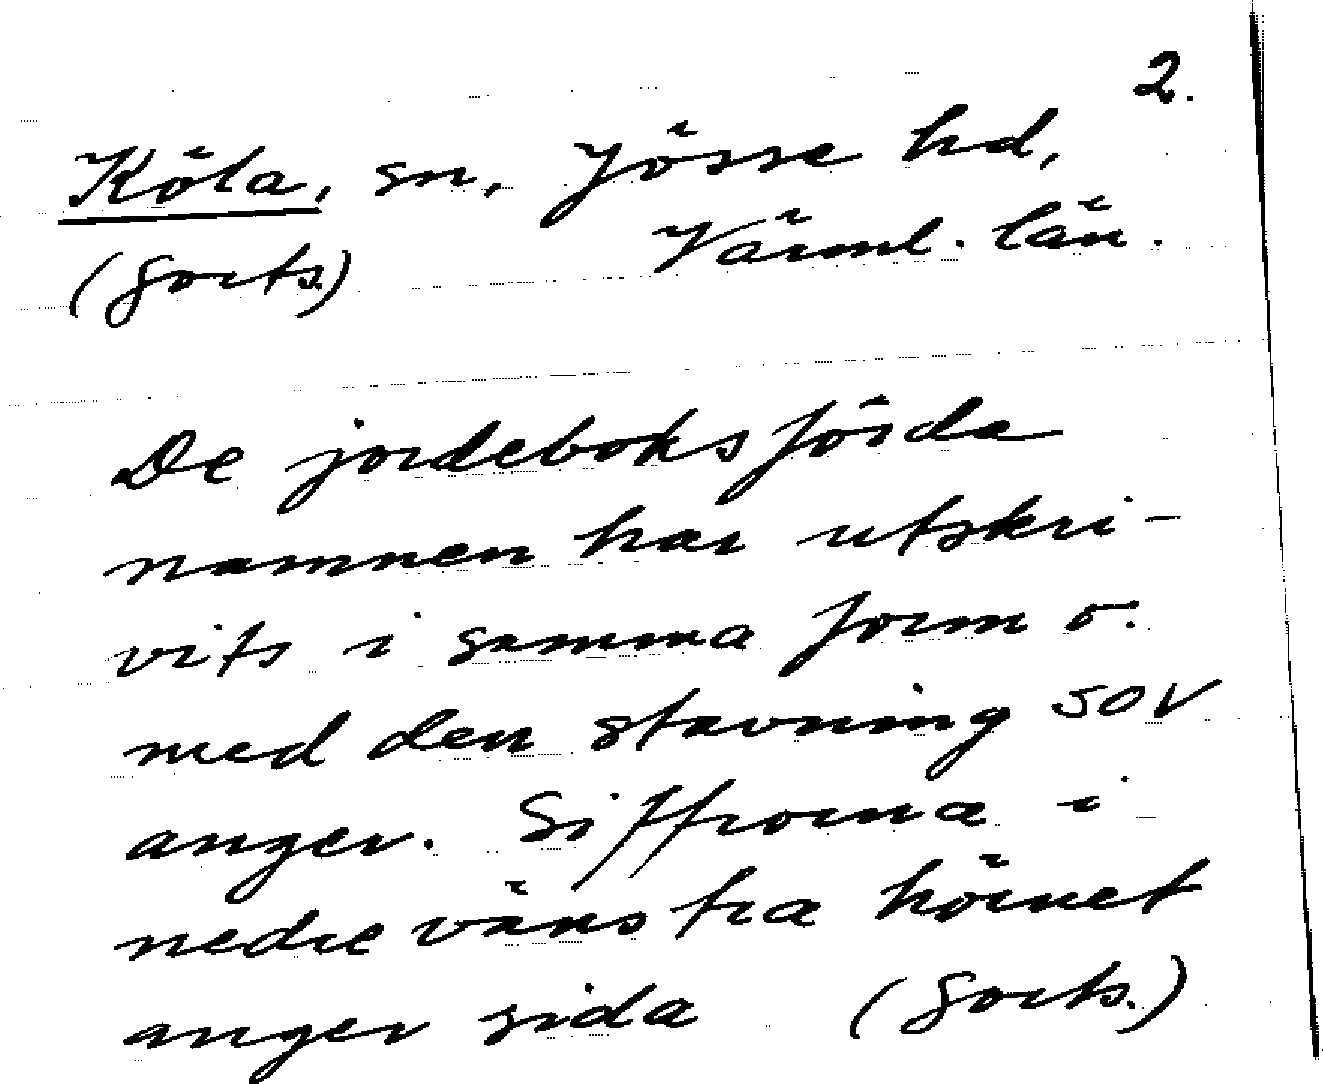 2.
Köla, sn, Jösse hd,
Värml. län.
(forts.)
De jordeboksförda
namnen har utskri-
vits i samma form o.
med den stavning SOV
anger. Siffrorna i
nedre vänstra hörnet
anger sida (forts.)